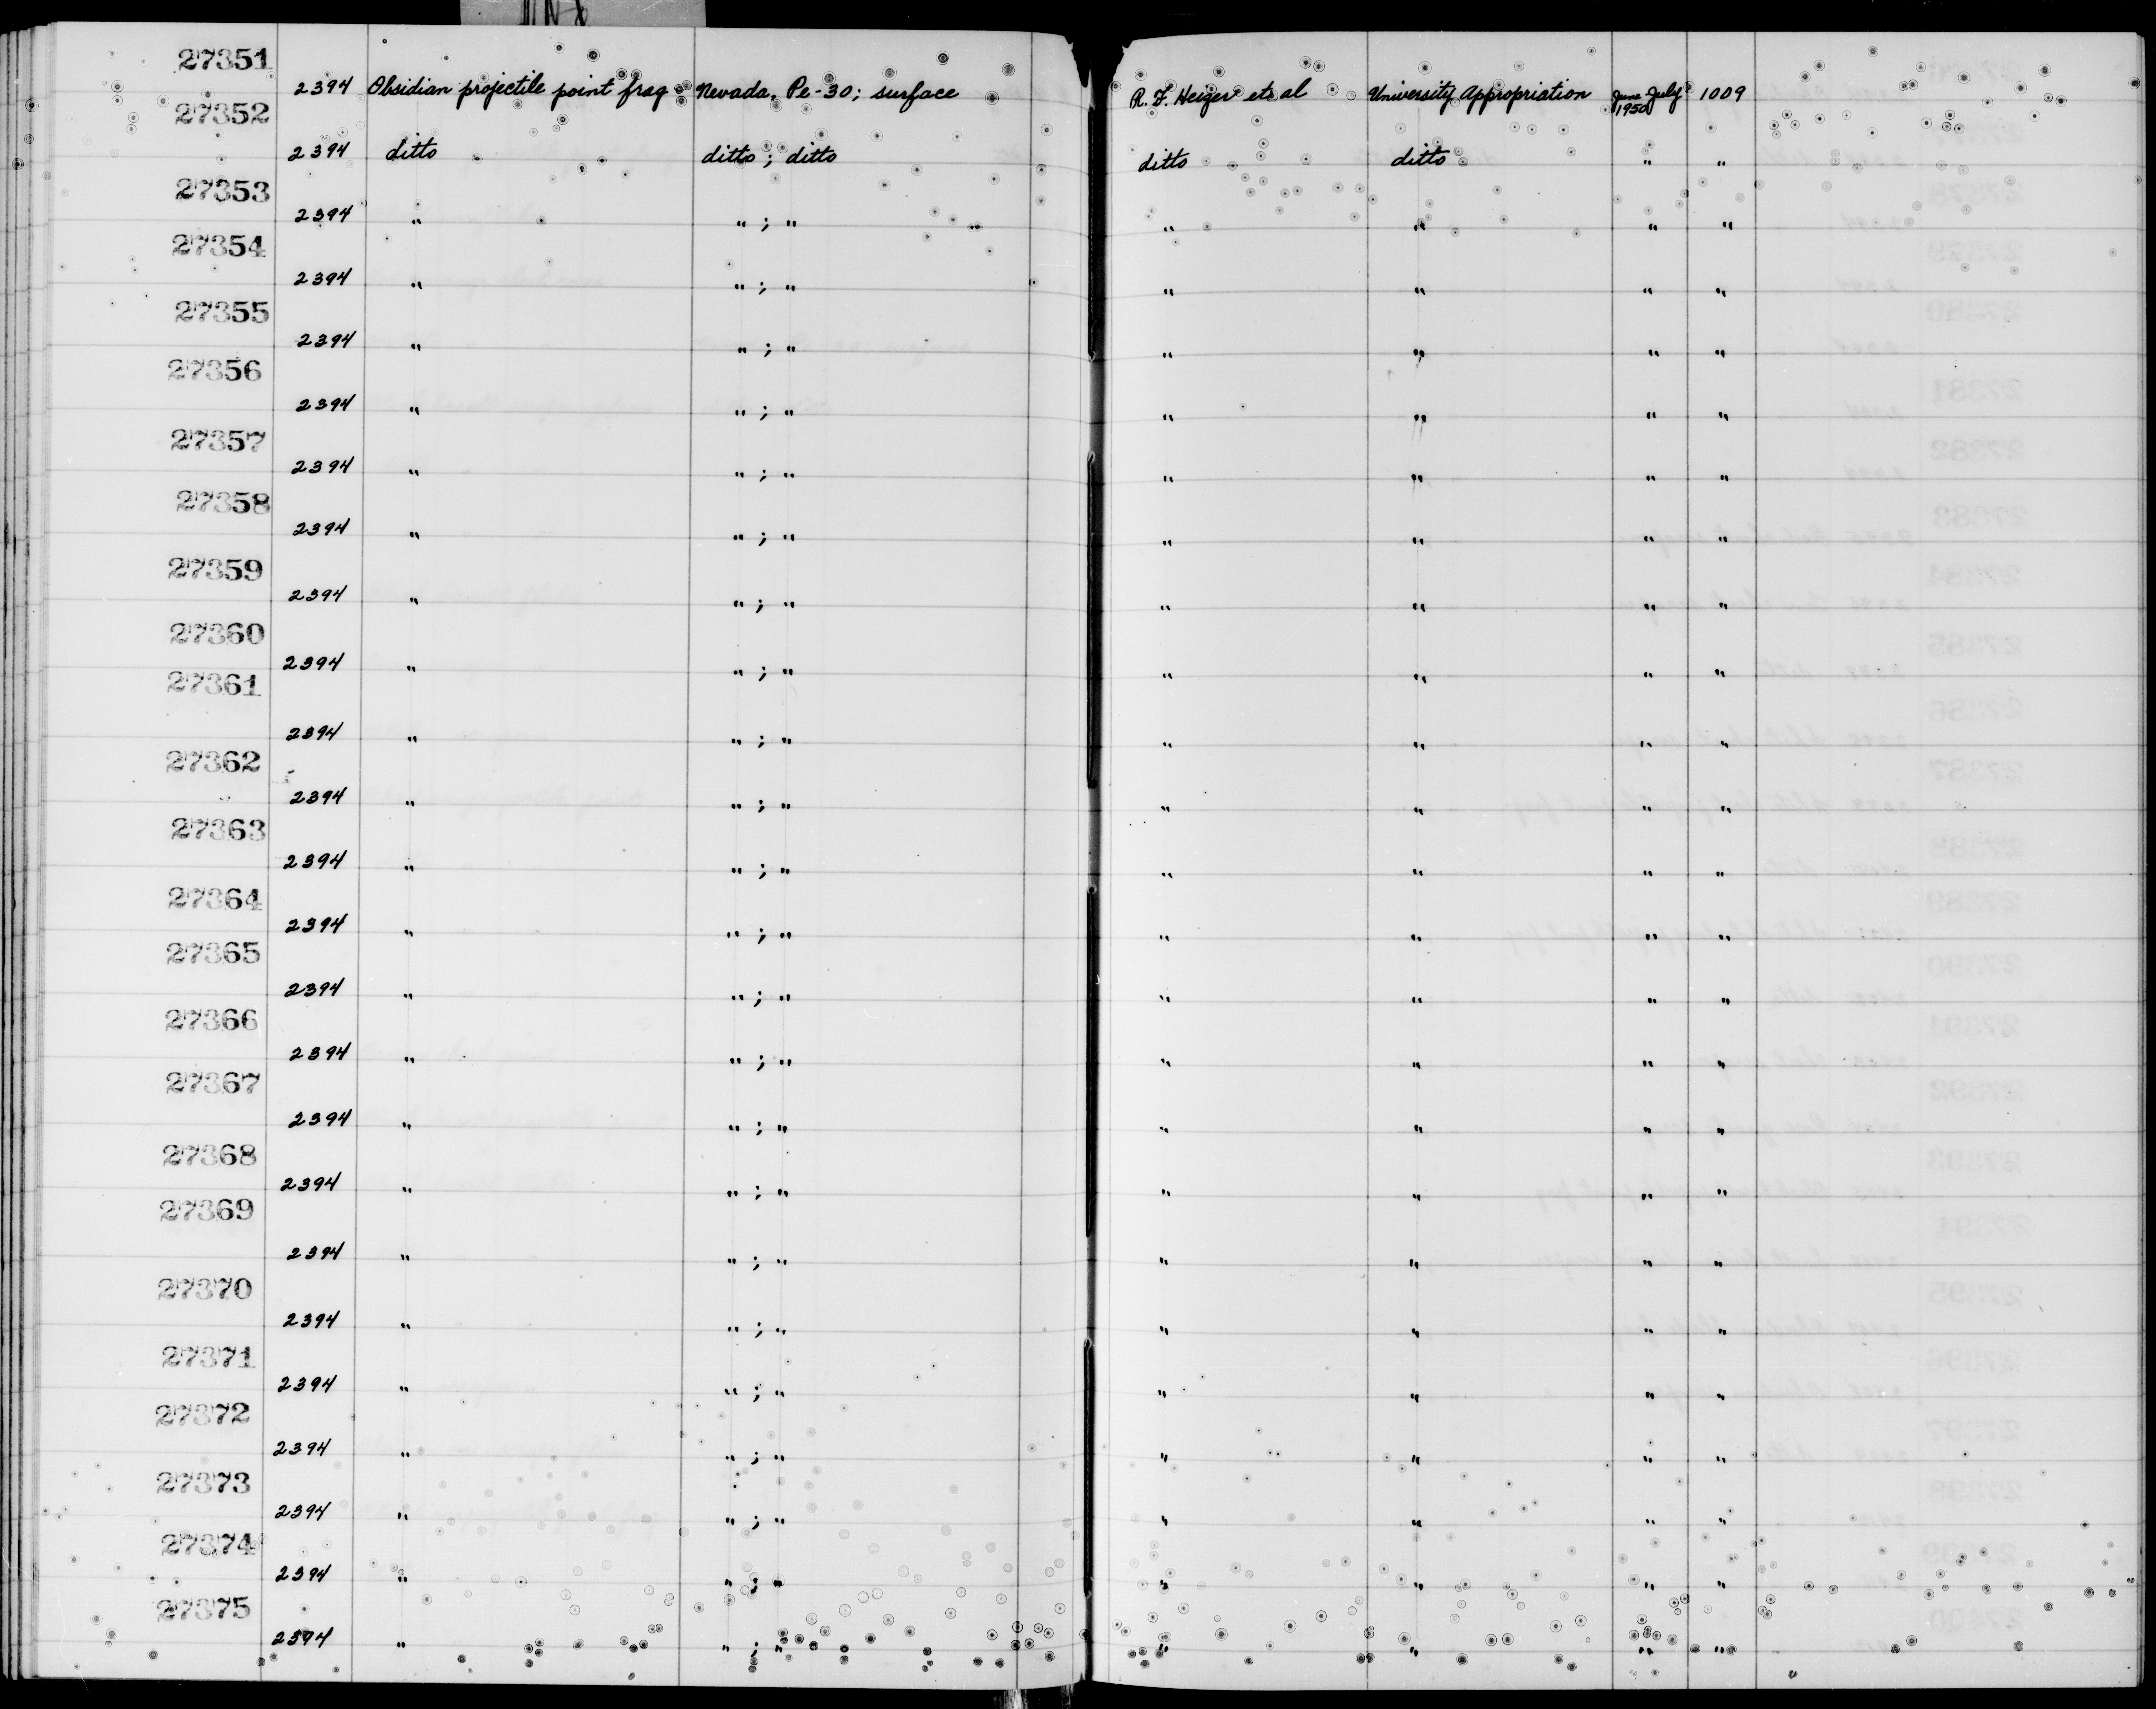 27351
2394 Obsidian projectile point frag. Nevada, Pe-30; surface R. F. Heizer et al University Appropriation June July 1950 1009
27352
2394 ditto ditto ; ditto ditto ditto " "
27353
2394 " " ; " " " " "
27354
2394 " " ; " " " " "
27355
2394 " " ; " " " " "
27356
2394 " " ; " " " " "
27357
2394 " " ; " " " " "
27358
2394 " " ; " " " " "
27359
2394 " " ; " " " " "
27360
2394 " " ; " " " " "
27361
2394 " " ; " " " " "
27362
2394 " " ; " " " " "
27363
2394 " " ; " " " " "
27364
2394 " " ; " " " " "
27365
2394 " " ; " " " " "
27366
2394 " " ; " " " " "
27367
2394 " " ; " " " " "
27368
2394 " " ; " " " " "
27369
2394 " " ; " " " " "
27370
2394 " " ; " " " " "
27371
2394 " " ; " " " " "
27372
2394 " " ; " " " " "
27373
2394 " " ; " " " " "
27374
2394 " " ; " " " " "
27375
2394 " " ; " " " " "